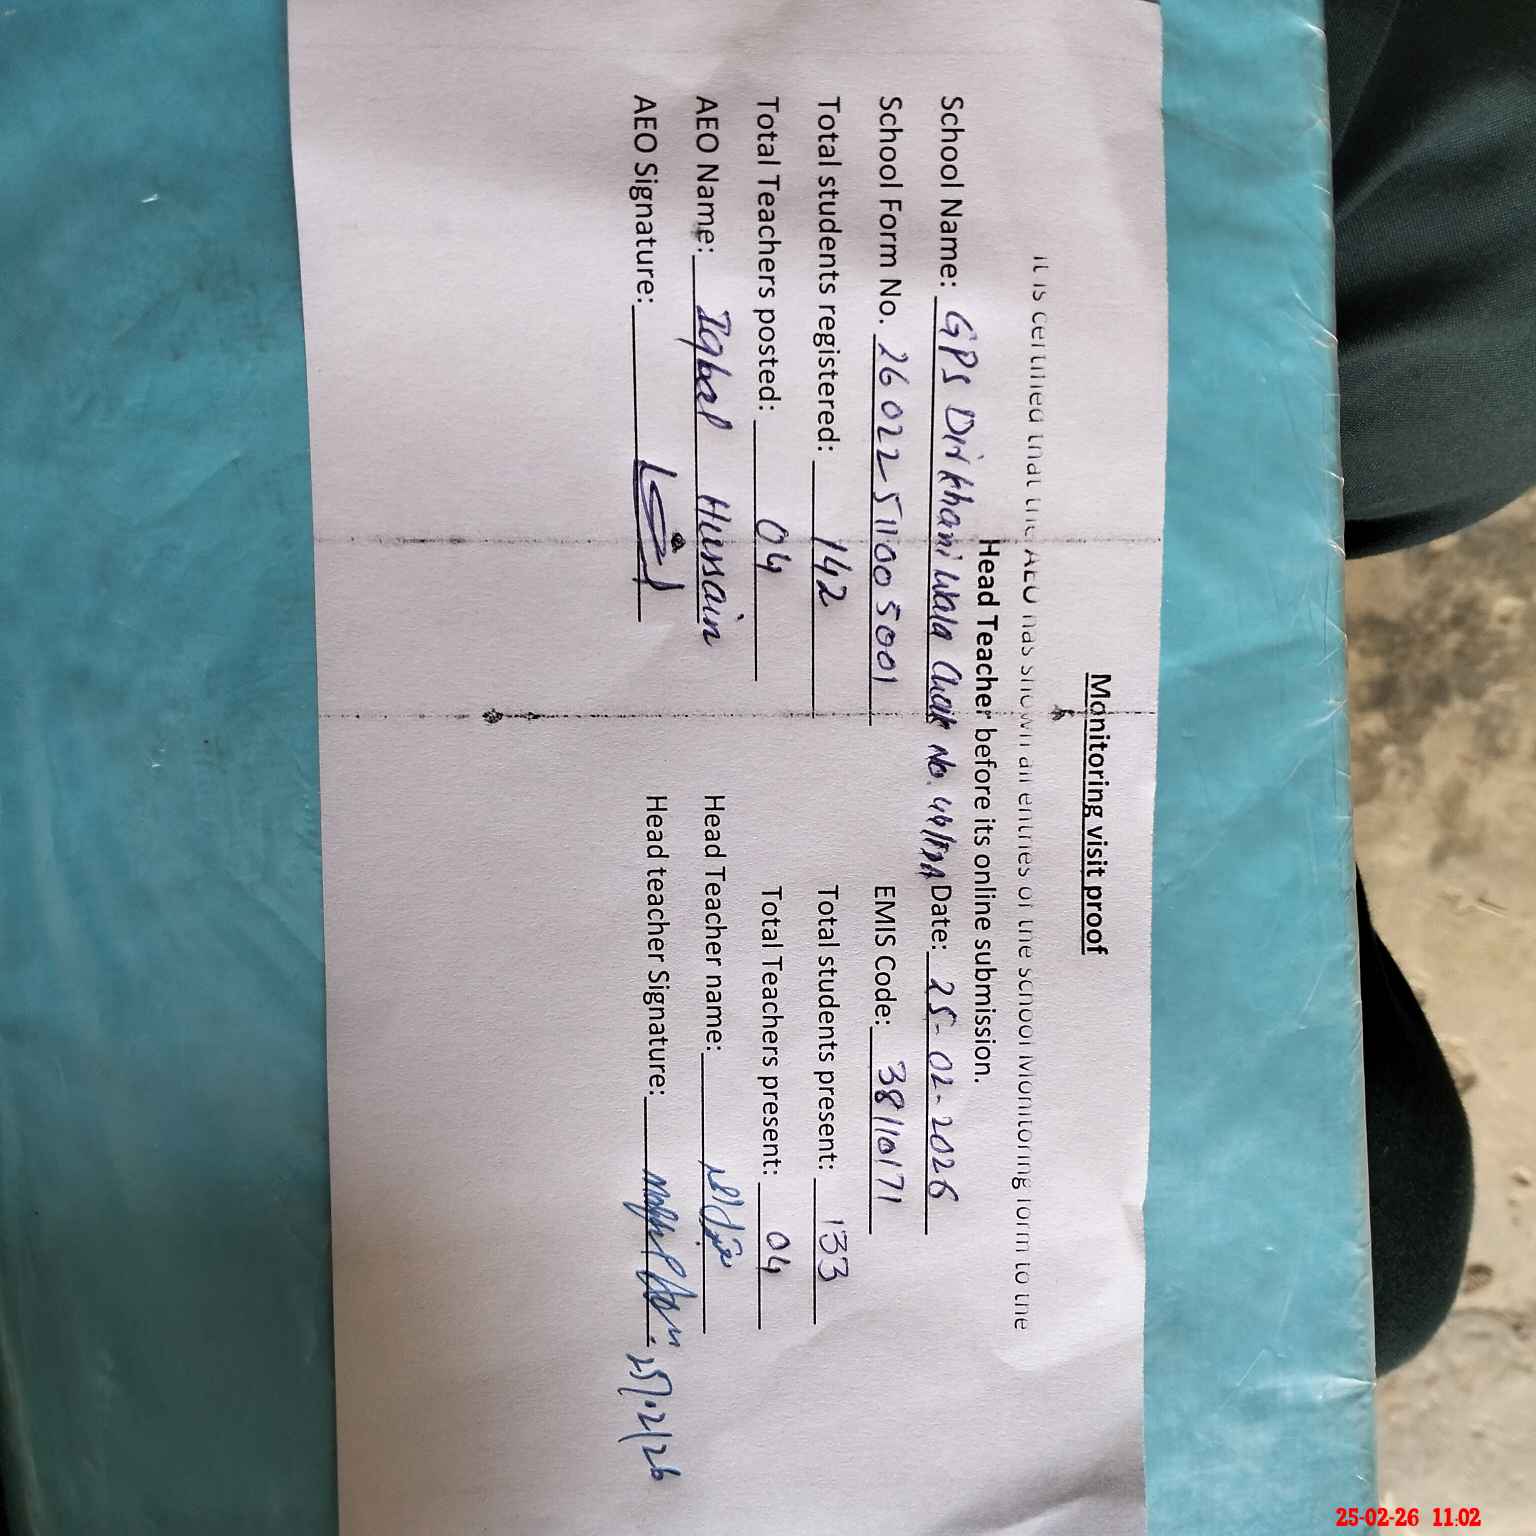 Monitoring visit proof
It is certified that the AEO has shown all entries of the school Monitoring form to the
Head Teacher before its online submission.
School Name: GPS Dirkhani Wala Chak No. 46/ Date: 25-02-2026
School Form No. 26022511005001 EMIS Code: 38110171
Total students registered: 142 Total students present: 133
Total Teachers posted: 04 Total Teachers present: 04
AEO Name: Iqbal Hussain Head Teacher name:
AEO Signature: Head teacher Signature: 25/2/26
25-02-26 11:02